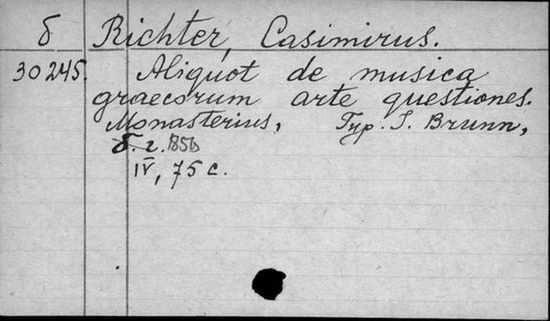 δ Richter, Casimirus.
30245. Aliquot de musica
graecorum arte questiones.
Monasterius, Typ. I. Brunn,
б. г. 1856
IV, 75 c.